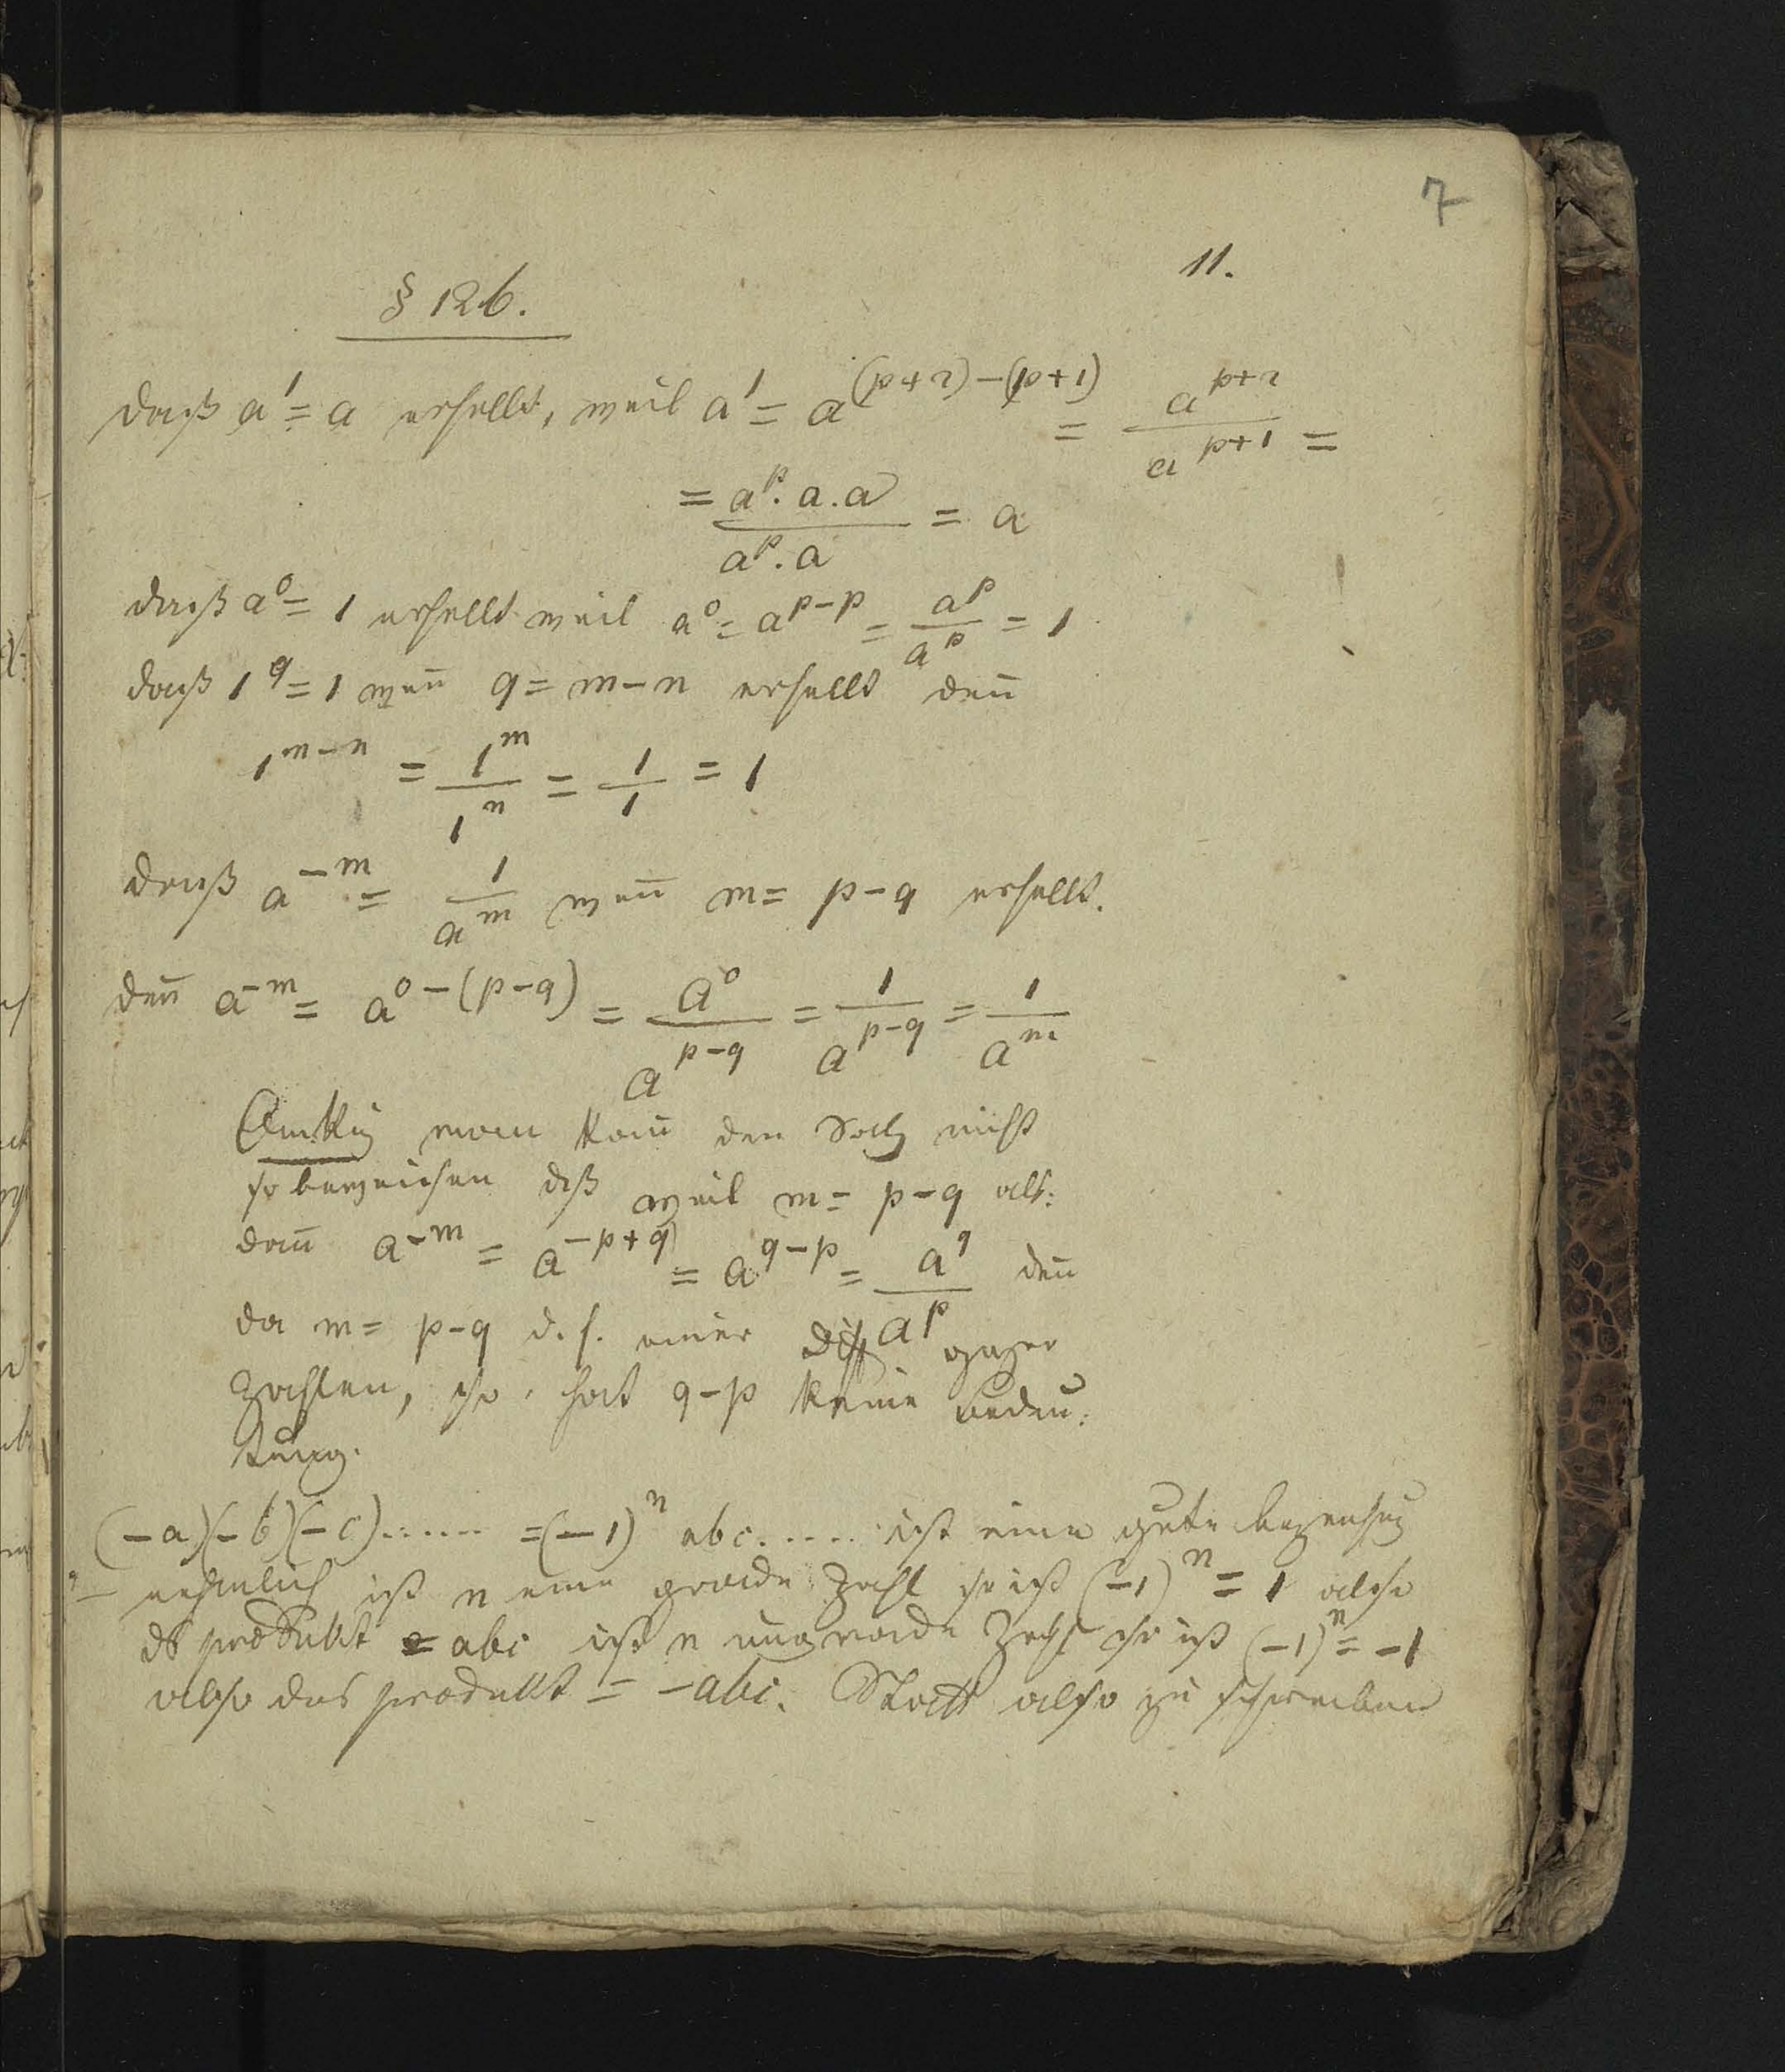 7
11.
§ 126.
daß a¹ = a erhellt, weil a¹ = a^((p+2)-(p+1)) = a^(p+2)/a^(p+1) =
= (a^p . a . a)/(a^p . a) = a
daß a⁰ = 1 erhellt weil a⁰ = a^(p-p) = a^p/a^p = 1
daß 1^q = 1 wen̄ q = m-n erhellt den̄
1^(m-n) = 1^m/1^n = 1/1 = 1
daß a^(-m) = 1/a^m wen̄ m = p-q erhellt.
den̄ a^(-m) = a^(0-(p-q)) = a⁰/a^(p-q) = 1/a^(p-q) = 1/a^m
man kan̄ den Satz nicht
so daß weil m = p-q als:
dan̄ a^(-m) = a^(-p+q) = a^(q-p) = a^q/a^p den̄
da m = p-q d. h. einer Diff ganzer
Zahlen, so hat q-p keine Bedeu:
tung.
(-a)(-b)(-c)...... = (-1)^n abc..... ist eine gute
nehmlich ist n eine grade Zahl so ist (-1)^n = 1 also
ds produkt = abc ist n ungerade Zahl so ist (-1)^n = -1
also das produkt = -abc. Statt also zu schreiben